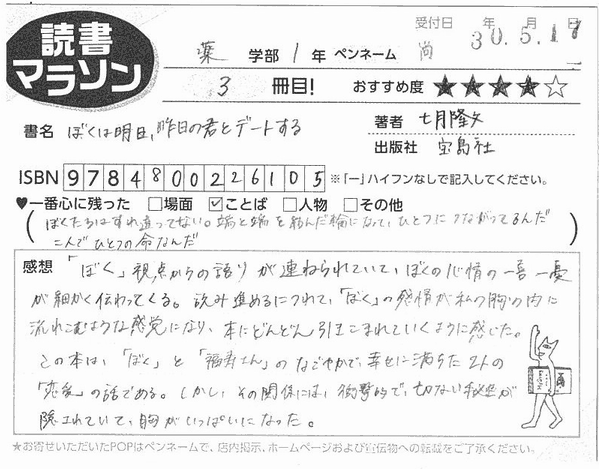 読書
マラソン
受付日 年 月 日
30.5.17
薬 学部 1 年 ペンネーム 尚
3 冊目! おすすめ度 ★★★★☆
書名 ぼくは明日、昨日の君とデートする
著者 七月隆文
出版社 宝島社
ISBN 9784800226105 ※「-」ハイフンなしで記入してください。
♥一番心に残った □場面 ☑ことば □人物 □その他
(ぼくたちはすれ違ってない。端と端を結んだ輪になって、ひとつにつながってるんだ
二人でひとつの命なんだ)
感想 「ぼく」視点からの語りが連ねられていて、ぼくの心情の一喜一憂
が細かく伝わってくる。読み進めるにつれて、「ぼく」の感情が私の胸の内に
流れこむような感覚になり、本にどんどん引きこまれていくように感じた。
この本は、「ぼく」と「福寿さん」のなごやかで、幸せに満ちた2人の
「恋愛」の話である。しかし、その関係には、衝撃的で、切ない秘密が
隠されていて、胸がいっぱいになった。
★お寄せいただいたPOPはペンネームで、店内掲示、ホームページおよび宣伝物への転載をご了承ください。